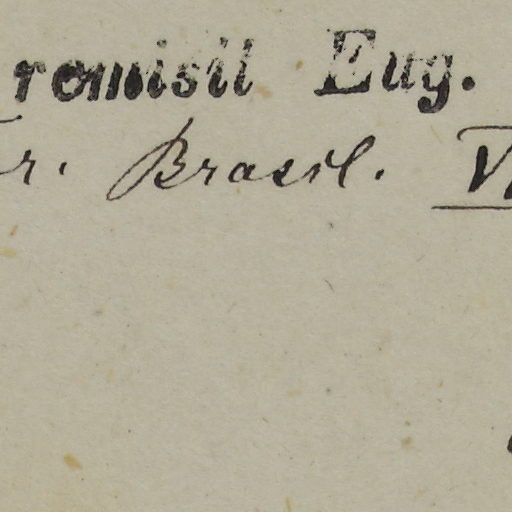 romisil Eug.
r. Brasil. V